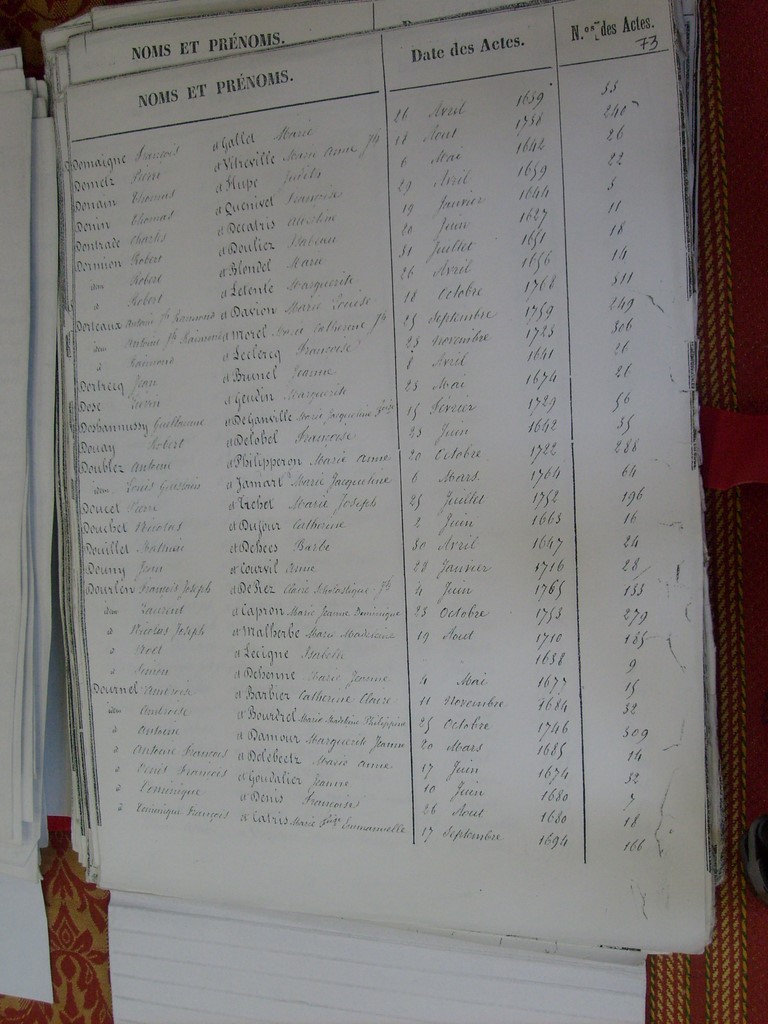 NOMS ET PRÉNOMS.
NOMS ET PRÉNOMS. Date des Actes. N.os des Actes.
73
Domaigne François et Gallet Marie 26 Avril 1659 33
Dometz Pierre et Vitreville Marie Anne 18 Aout 1758 240
Thomas et Hupe Judith 6 Mai 1642 26
Thomas et Quenivet Françoise 29 Avril 1659 22
Charles et Decatris 19 Janvier 1644 5
Dormion Robert et Douliez Isabeau 20 Juin 1627 11
idem Robert et Blondel Marie 31 Juillet 1651 18
" Robert et Letente Marguerite 26 Avril 1656 14
Dorteaux Antoine Raimond et Davion Marie Louise 18 Octobre 1768 311
idem Antoine Raimond et Morel Catherine 25 Septembre 1759 249
" Raimond et Leclercq Françoise 23 Novembre 1723 306
Dortrecq Jean et Brunel Jeanne 8 Avril 1641 26
Dose et Gendin Marguerite 23 Mai 1674 26
Guillaume et DeGanville Marie Jacqueline 15 Février 1729 56
Douay Robert et Delobel Françoise 23 Juin 1642 35
Doublez Antoine et Philipperon Marie Anne 20 Octobre 1722 288
idem Louis et Jamart Marie Jacqueline 6 Mars 1764 64
Doucet Pierre et Marie Joseph 25 Juillet 1752 196
Douchet Nicolas et Dufour Catherine 2 Juin 1663 16
Douillet et Dehees Barbe 30 Avril 1647 24
Jean et Courvil Anne 28 Janvier 1716 28
Dourlen François Joseph et DeRez Scholastique 4 Juin 1765 133
idem Laurent et Capron Marie Jeanne Dominique 23 Octobre 1753 279
" Nicolas Joseph et Malherbe Marie Madeleine 19 Aout 1710 185
" Noel et Lecigne Isabelle 1638 9
" Simon et Dehenne Marie Jeanne 4 Mai 1677 15
Dournel Ambroise et Barbier Catherine Claire 11 Novembre 1684 32
idem Ambroise et Bourdrel Marie Madeleine Philippine 25 Octobre 1746 309
" Antoine et Damour Marguerite Jeanne 20 Mars 1685 14
" Antoine François et Delebectz Marie Anne 17 Juin 1674 32
" Denis François et Goudalier Jeanne 10 Juin 1680 7
" Dominique et Denis Françoise 26 Aout 1680 18
" Dominique François et Catris Marie Emmanuelle 17 Septembre 1694 166